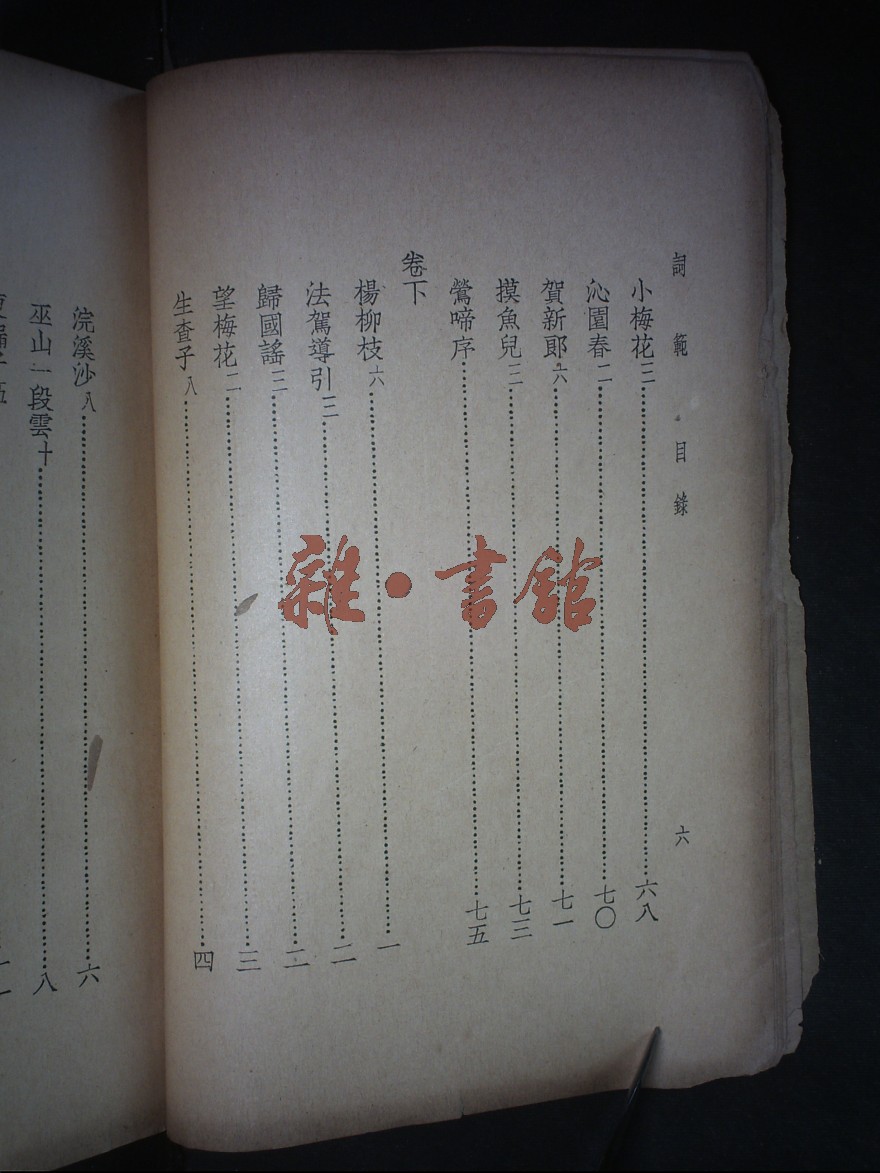 詞範 目錄 六
小梅花三……六八
沁園春二……七〇
賀新郎六……七一
摸魚兒三……七三
鶯啼序……七五
卷下
楊柳枝六……一
法駕導引三……二
歸國謠三……二
望梅花二……三
生查子八……四
浣溪沙八……六
巫山一段雲十……八
雜·書館